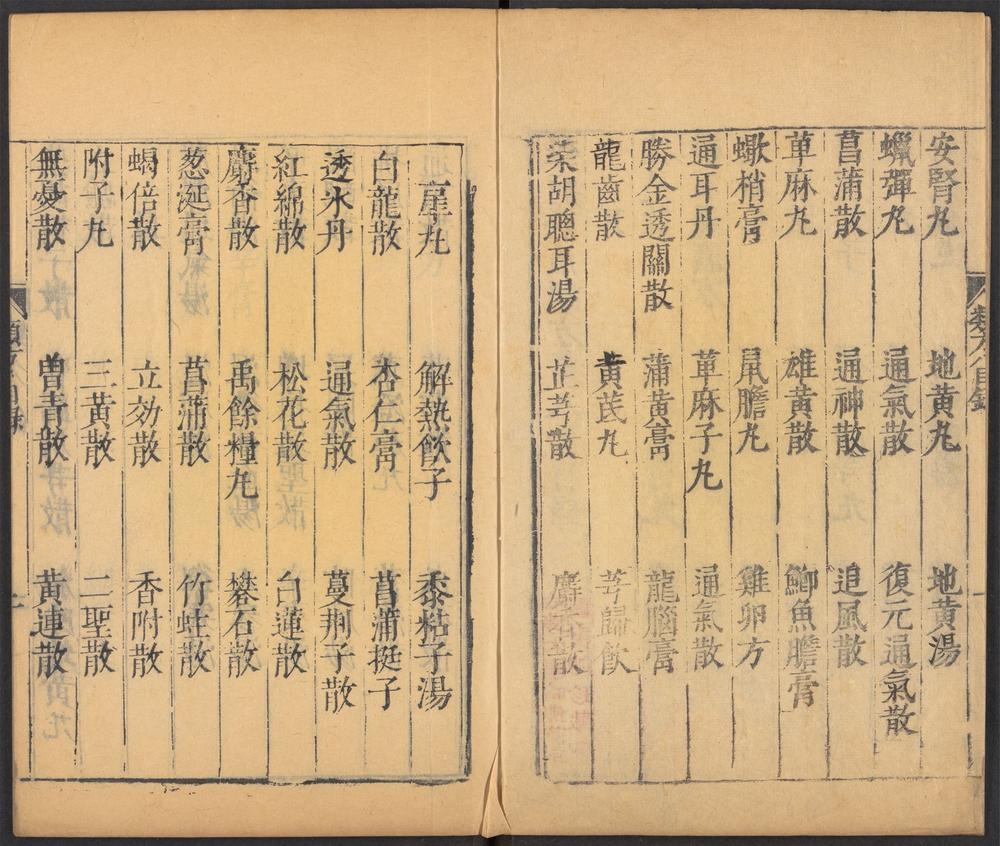 安腎丸 地黄丸 地黄湯
蠟彈丸 通氣散 復元通氣散
菖蒲散 通神散 追風散
草麻丸 雄黄散 鯽魚膽膏
蠍梢膏 鼠膽丸 雞卵方
通耳丹 萆麻子丸 通氣散
勝金透關散 蒲黄膏 龍腦膏
龍齒散 黄茋丸 芎歸飲
柴胡聰耳湯 芷芎散 麝香散
崖丸 解熱飲子 黍粘子湯
白龍散 杏仁膏 菖蒲挺子
透氷丹 通氣散 蔓荆子散
紅綿散 松花散 白蓮散
麝香散 禹餘糧丸 礬石散
葱涎膏 菖蒲散 竹蛀散
蝎倍散 立効散 香附散
附子丸 三黄散 二聖散
無憂散 曽青散 黄連散